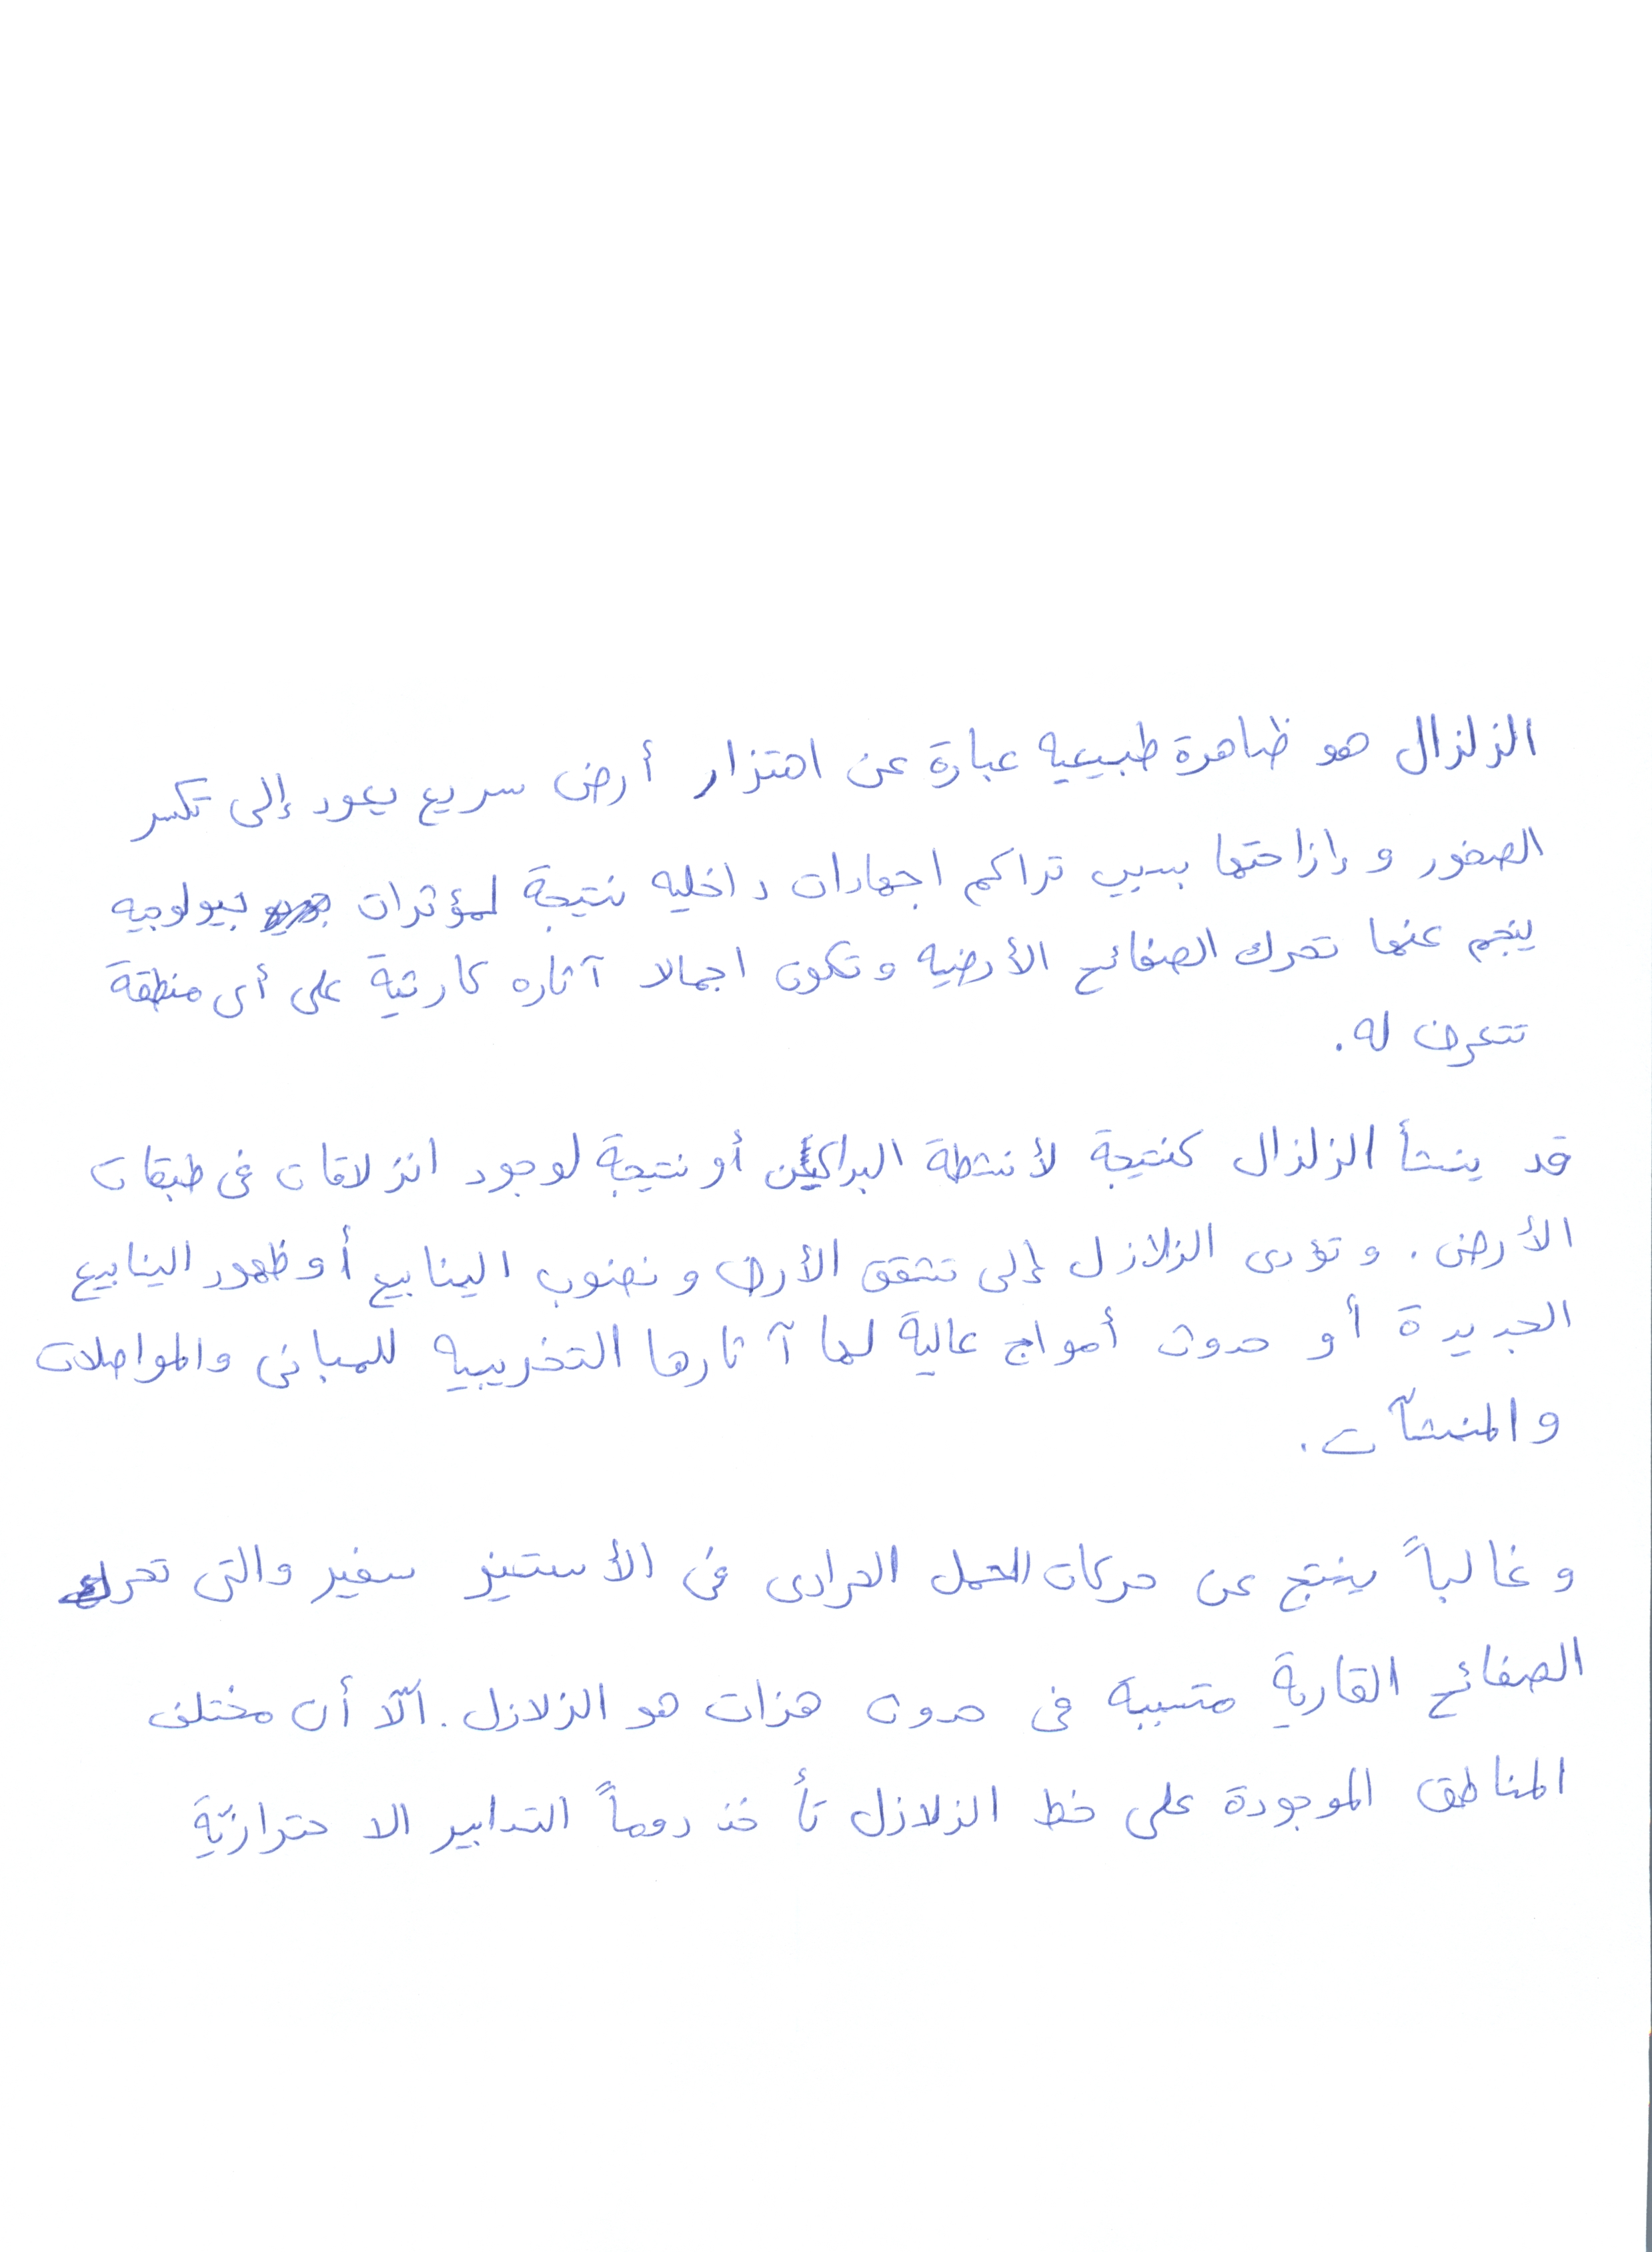 الزلزال هو ظاهرة طبيعيه عبارة عن اهتزار أرض سريع يعود إلى تكسر
الصخور وإزاحتها بسبب تراكم اجهادات داخليه نتيجة لمؤثرات جيولوجيه
ينجم عنها تحرك الصفائح الأرضيه وتكون اجمالا آثاره كارثية على أى منطقة
تتعرض له.
قد ينشأ الزلزال كنتيجة لأنشطة البراكين أو نتيجة لوجود انزلاقات فى طبقات
الأرض. وتؤدى الزلازل إلى تشقق الأرض ونضوب الينابيع أو ظهور الينابيع
الجديدة أو حدوث أمواج عالية لها آثارها التخريبيه للمبانى والمواصلات
والمنشآت.
وغالباً ينتج عن حركات الحمل الحرارى فى الأستينو سفير والتى تحرك
الصفائح القارية متسببة فى حدوث هزات هو الزلازل. الّا أن مختلف
المناطق الموجودة على خط الزلازل تأخذ دوماً التدابير الاحترازيّة